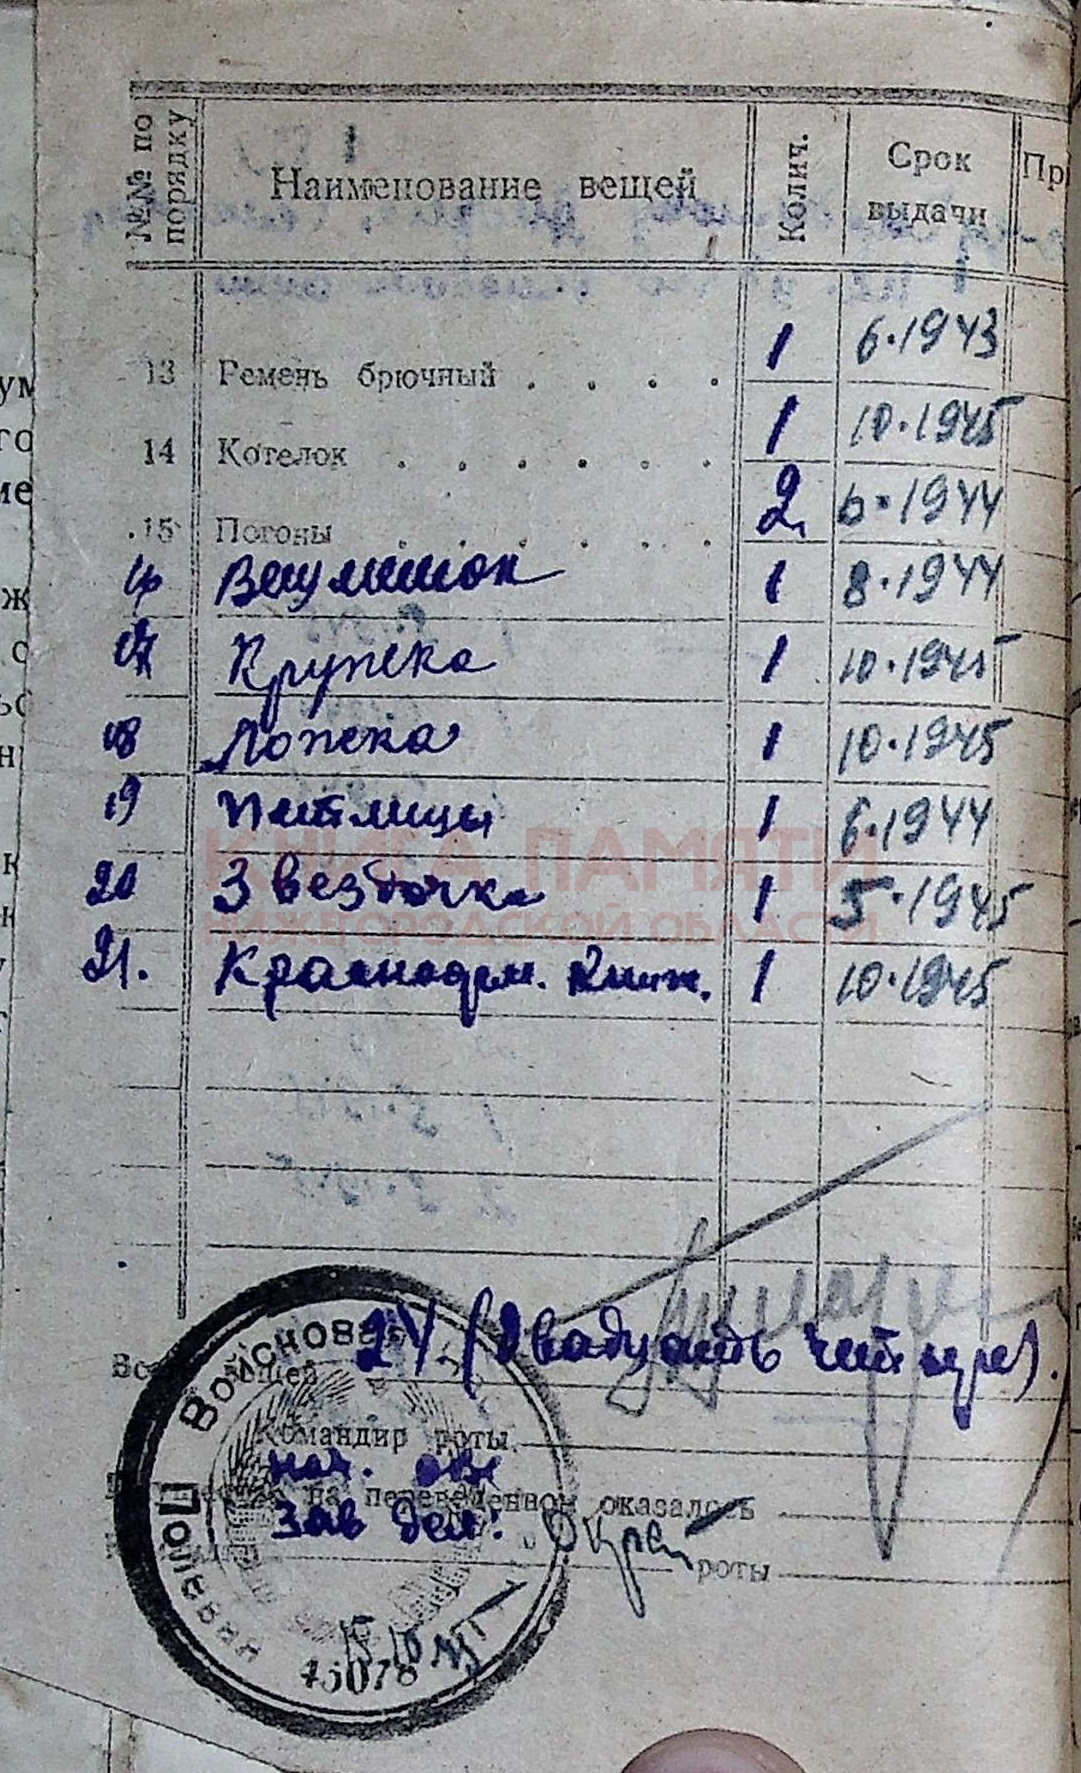 №№ по порядку Наименование вещей Колич. Срок выдачи Пр
13 Ремень брючный . . . . 1 6.1943
14 Котелок . . . . . . 1 10.1945
15 Погоны . . . . . . 2 6.1944
16 Вещмешок 1 8.1944
17 Кружка 1 10.1945
18 Ложка 1 10.1945
19 Петлицы 1 6.1944
КНИГА ПАМЯТИ
20 Звездочка 1 5.1945
НИЖЕГОРОДСКОЙ ОБЛАСТИ
21. Красноарм. Книж. 1 10.1945
вещей 24 (Двадцать четыре).
Командир роты
нач. обв
на переведенном оказалось
Зав дел:
роты
15.10.45
Войсковая
Полевая
П
45078